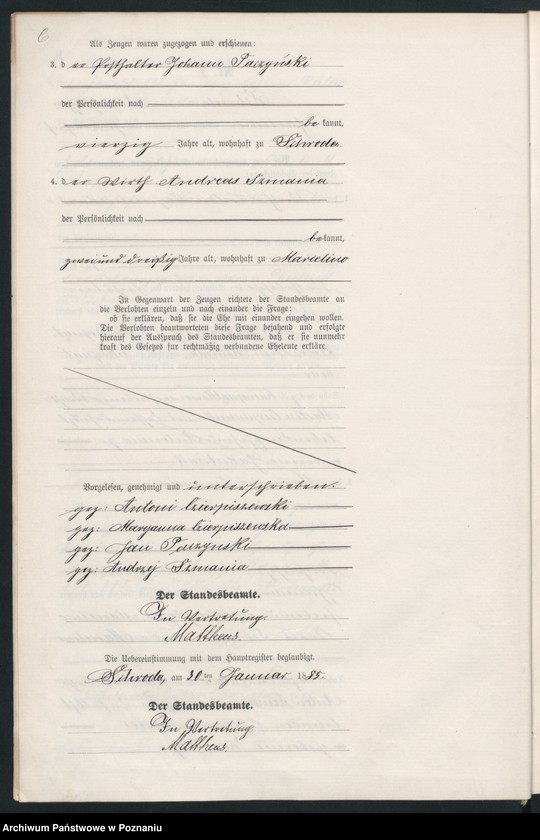 6
Als Zeugen waren zugezogen und erschienen:
3. der Posthalter Johann Paczyński
der Persönlichkeit nach
bekannt,
vierzig Jahre alt, wohnhaft zu Schroda
4. der Wirth Andreas Szmania
der Persönlichkeit nach
bekannt,
zweiunddreißig Jahre alt, wohnhaft zu Marcelino
In Gegenwart der Zeugen richtete der Standesbeamte an
die Verlobten einzeln und nach einander die Frage:
ob sie erklären, daß sie die Ehe mit einander eingehen wollen.
Die Verlobten beantworteten diese Frage bejahend und erfolgte
hierauf der Ausspruch des Standesbeamten, daß er sie nunmehr
kraft des Gesetzes für rechtmäßig verbundene Eheleute erkläre.
Vorgelesen, genehmigt und unterschrieben.
gez: Antoni Cierpiszewski
gez: Maryanna Cierpiszewska
gez: Jan Paczynski
gez: Andrzej Szmania
Der Standesbeamte.
In Vertretung.
Mattheus.
Die Uebereinstimmung mit dem Hauptregister beglaubigt.
Schroda, am 30ten Januar 1885.
Der Standesbeamte.
In Vertretung.
Mattheus.
Archiwum Państwowe w Poznaniu